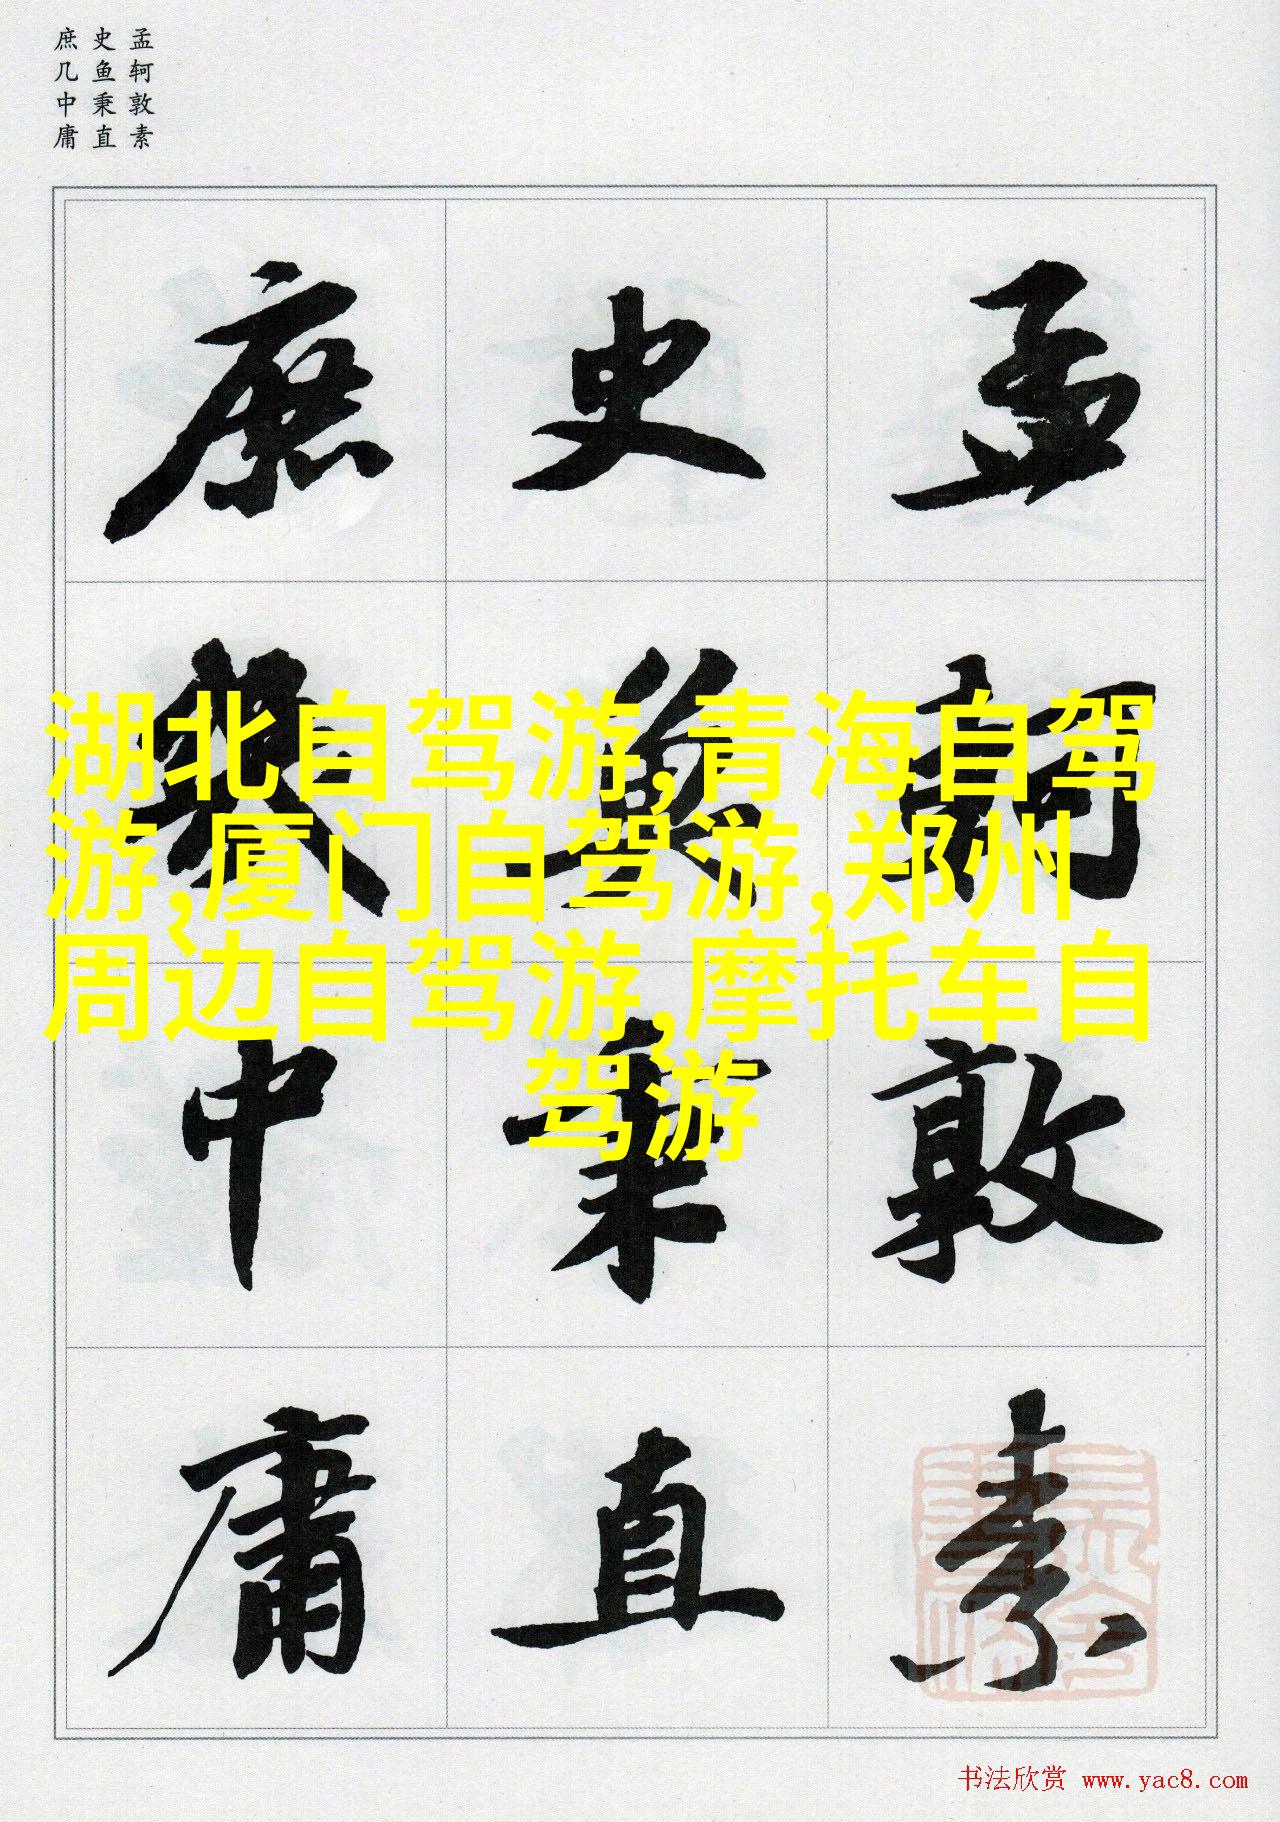 孟轲敦素
史鱼秉直
庶几中庸
孟軻敦素
史魚秉直
庶幾中庸
湖北自驾游,青海自驾
游,厦门自驾游,郑州
周边自驾游,摩托车自
驾游
书法欣赏 www.yac8.com